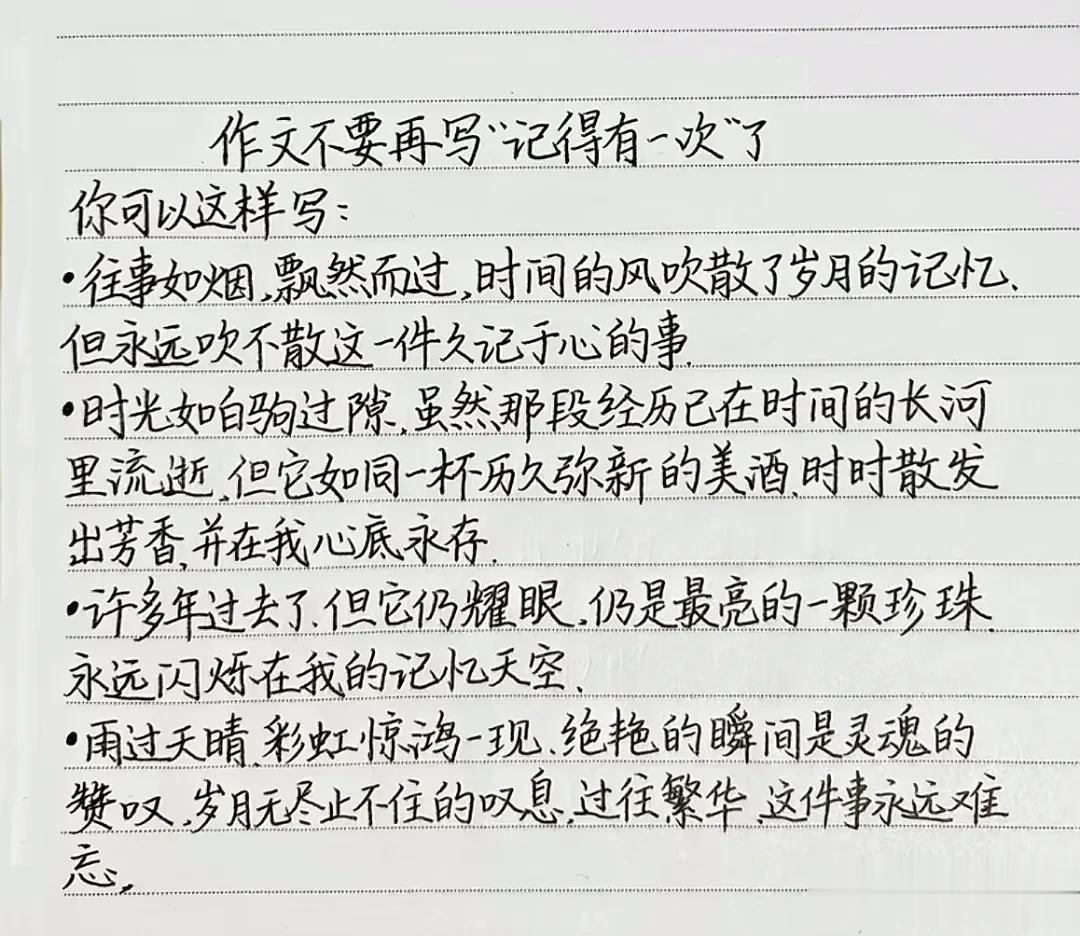 作文不要再写“记得有一次”了
你可以这样写:
•往事如烟,飘然而过,时间的风吹散了岁月的记忆.
但永远吹不散这一件久记于心的事.
•时光如白驹过隙,虽然那段经历已在时间的长河
里流逝,但它如同一杯历久弥新的美酒,时时散发
出芳香,并在我心底永存.
•许多年过去了,但它仍耀眼,仍是最亮的一颗珍珠.
永远闪烁在我的记忆天空.
•雨过天晴,彩虹惊鸿一现,绝艳的瞬间是灵魂的
赞叹,岁月无尽止不住的叹息,过往繁华,这件事永远难
忘,